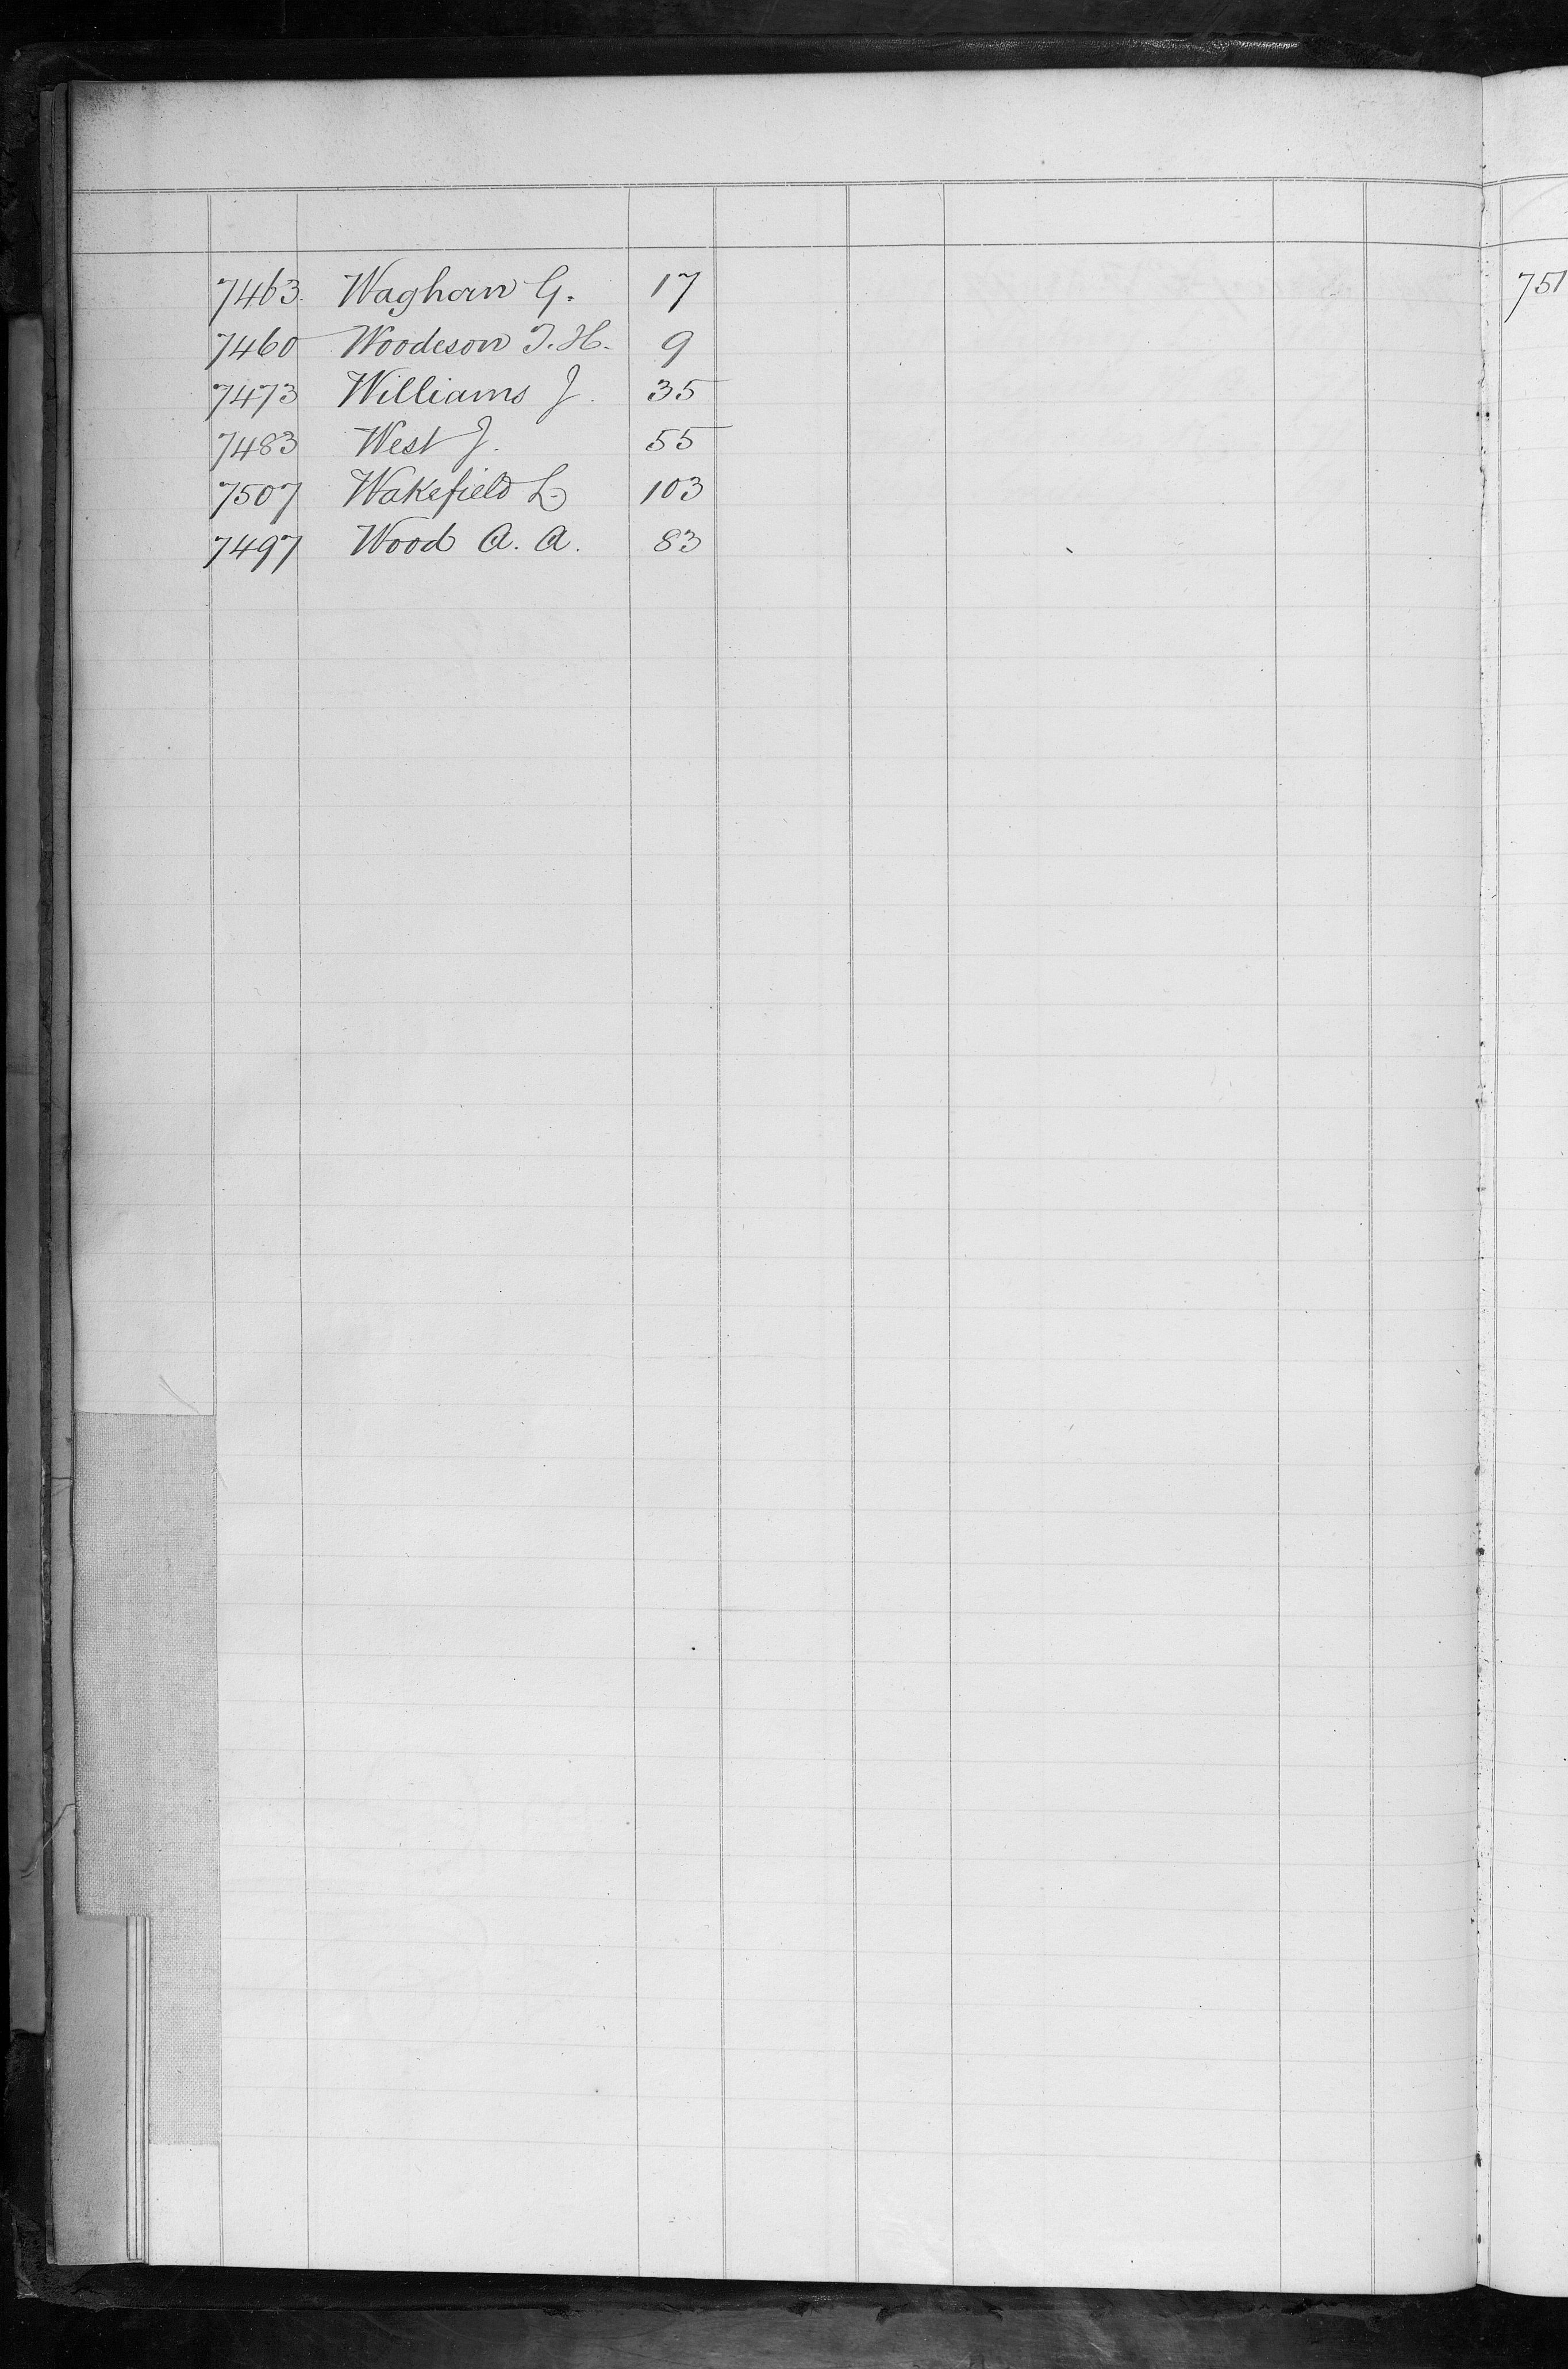 7463. Waghorn G. 17
7460 Woodeson T. H. 9
7473 Williams J. 35
7483 West J. 55
7507 Wakefield L. 103
7497 Wood A. A. 83
751